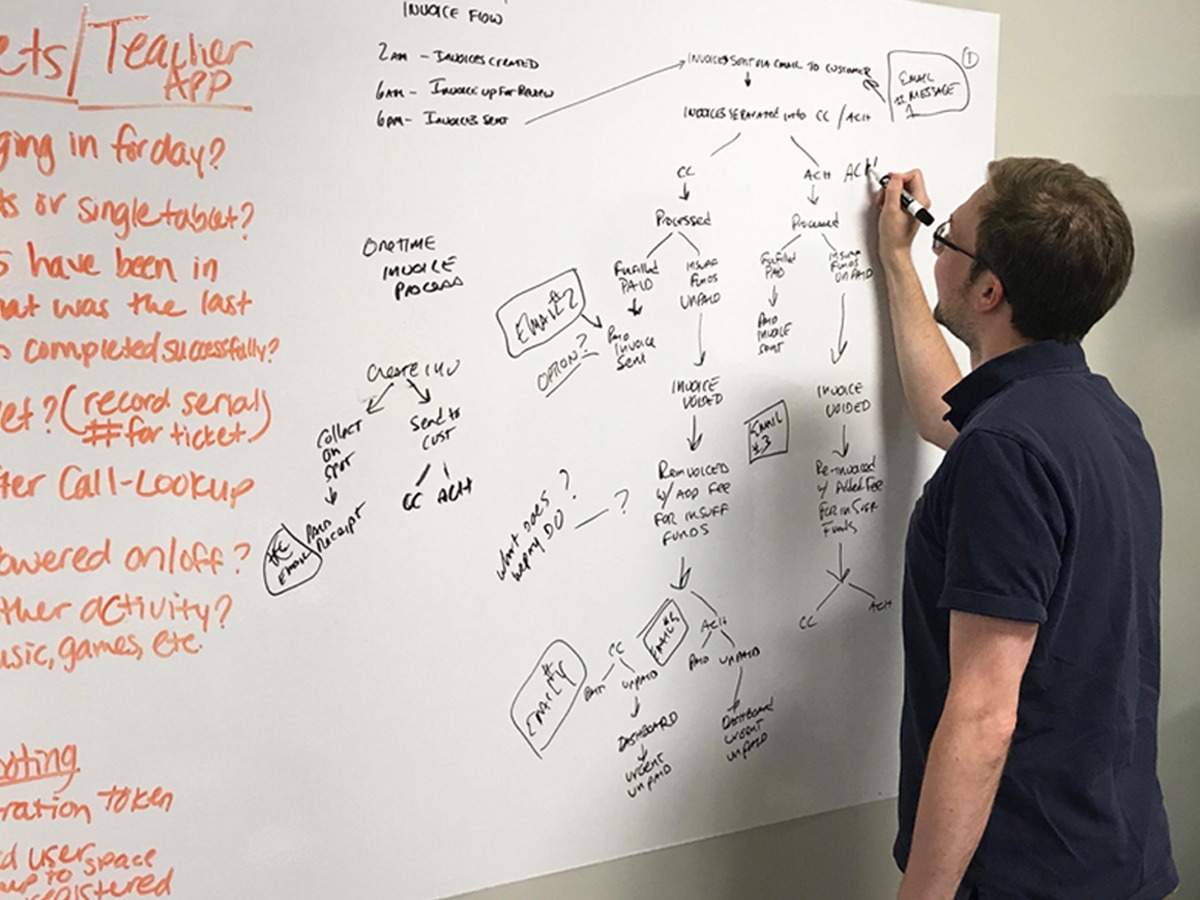 ets/Teacher
APP
ging in for day?
ts or single tablet?
s have been in
hat was the last
completed successfully?
et? (record serial
# for ticket)
ter Call-Lookup
owered on/off?
ther activity?
usic, games, etc.
oting
ration token
d user space
up to
registered
INVOICE FLOW
2AM - INVOICES CREATED
6AM - INVOICE UP FOR REVIEW
6PM - INVOICES SENT
INVOICES SENT VIA EMAIL TO CUSTOMER
EMAIL
MESSAGE
1
1
INVOICES SEPARATED into CC / ACH
CC
ACH
ACH
Processed
Processed
Fulfilled
PAID
INSUFF
FUNDS
UNPAID
Fulfilled
PAID
INSUFF
FUNDS
UNPAID
EMAIL #2
OPTION?
PAID
INVOICE
Sent
PAID
INVOICE
SENT
INVOICE
VOIDED
INVOICE
VOIDED
EMAIL
#3
Reinvoiced
w/ ADD FEE
FOR INSUFF
FUNDS
Re-invoiced
w/ Added Fee
FOR INSUFF
Funds
CC
ACH
ONE TIME
INVOICE
PROCESS
Create INV
COLLECT
ON
SPOT
Send to
CUST
CC ACH
PAID
RECEIPT
EMAIL
What DOES ?
wepay DO
?
EMAIL #4
EMAIL #5
CC
PAID
UNPAID
DASHBOARD
URGENT
UNPAID
ACH
PAID
UNPAID
DASHBOARD
URGENT
UNPAID